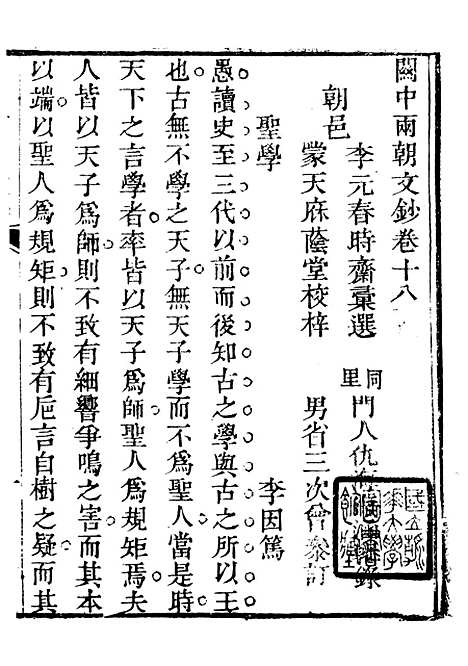 關中兩朝文鈔卷十八
朝邑 李元春時齋彙選 同里 門人仇
蒙天庥蔭堂校梓 男省三次曾參訂
聖學 李因篤
愚讀史至三代以前而後知古之學與古之所以王
也古無不學之天子無天子學而不為聖人當是時
天下之言學者率皆以天子為師聖人為規矩焉夫
人皆以天子為師則不致有細響爭鳴之害而其本
以端以聖人為規矩則不致有卮言自樹之疑而其